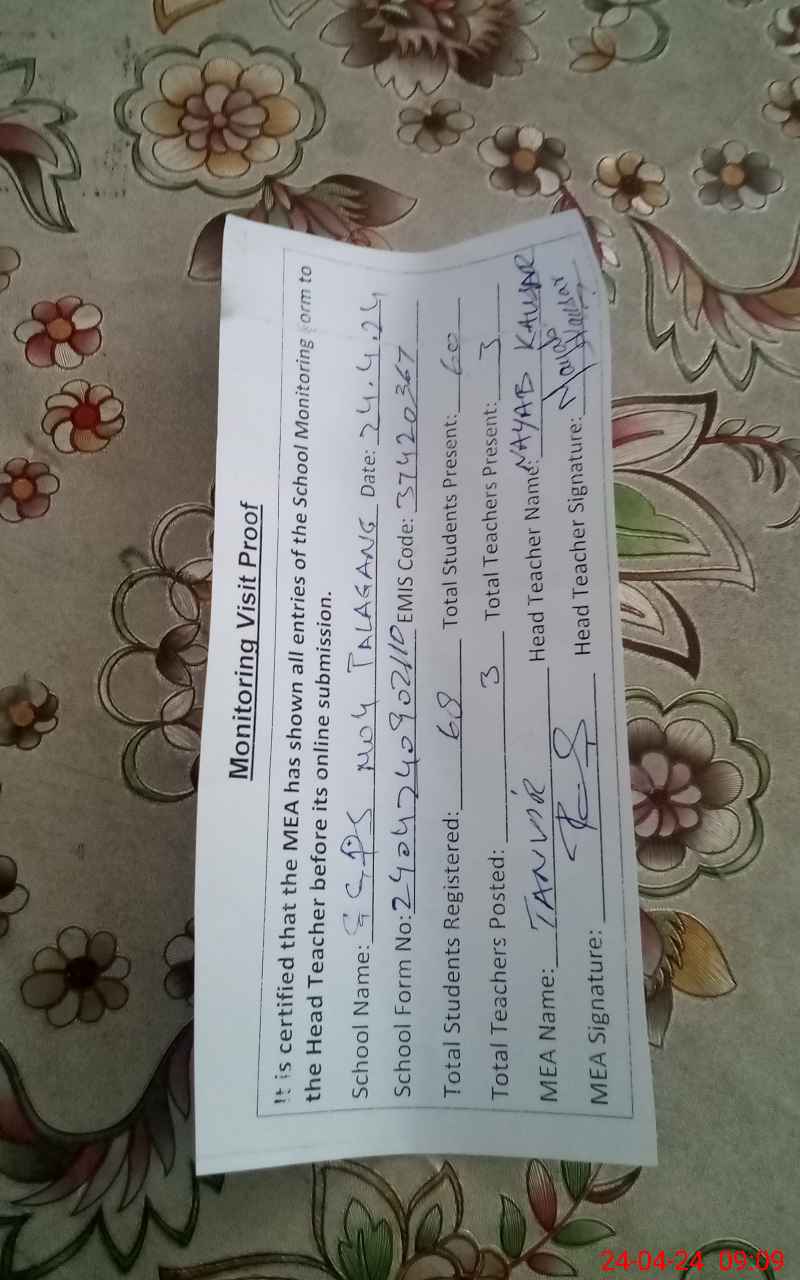 Monitoring Visit Proof
It is certified that the MEA has shown all entries of the School Monitoring Form to
the Head Teacher before its online submission.
School Name: GGPS NO4 TALAGANG Date: 24.4.24
School Form No: 2404240902110 EMIS Code: 37420367
Total Students Registered: 68 Total Students Present: 60
Total Teachers Posted: 3 Total Teachers Present: 3
MEA Name: TANVIR Head Teacher Name: NAYAB KAUSAR
MEA Signature: Head Teacher Signature: Nayab Kausar
24-04-24 09:09